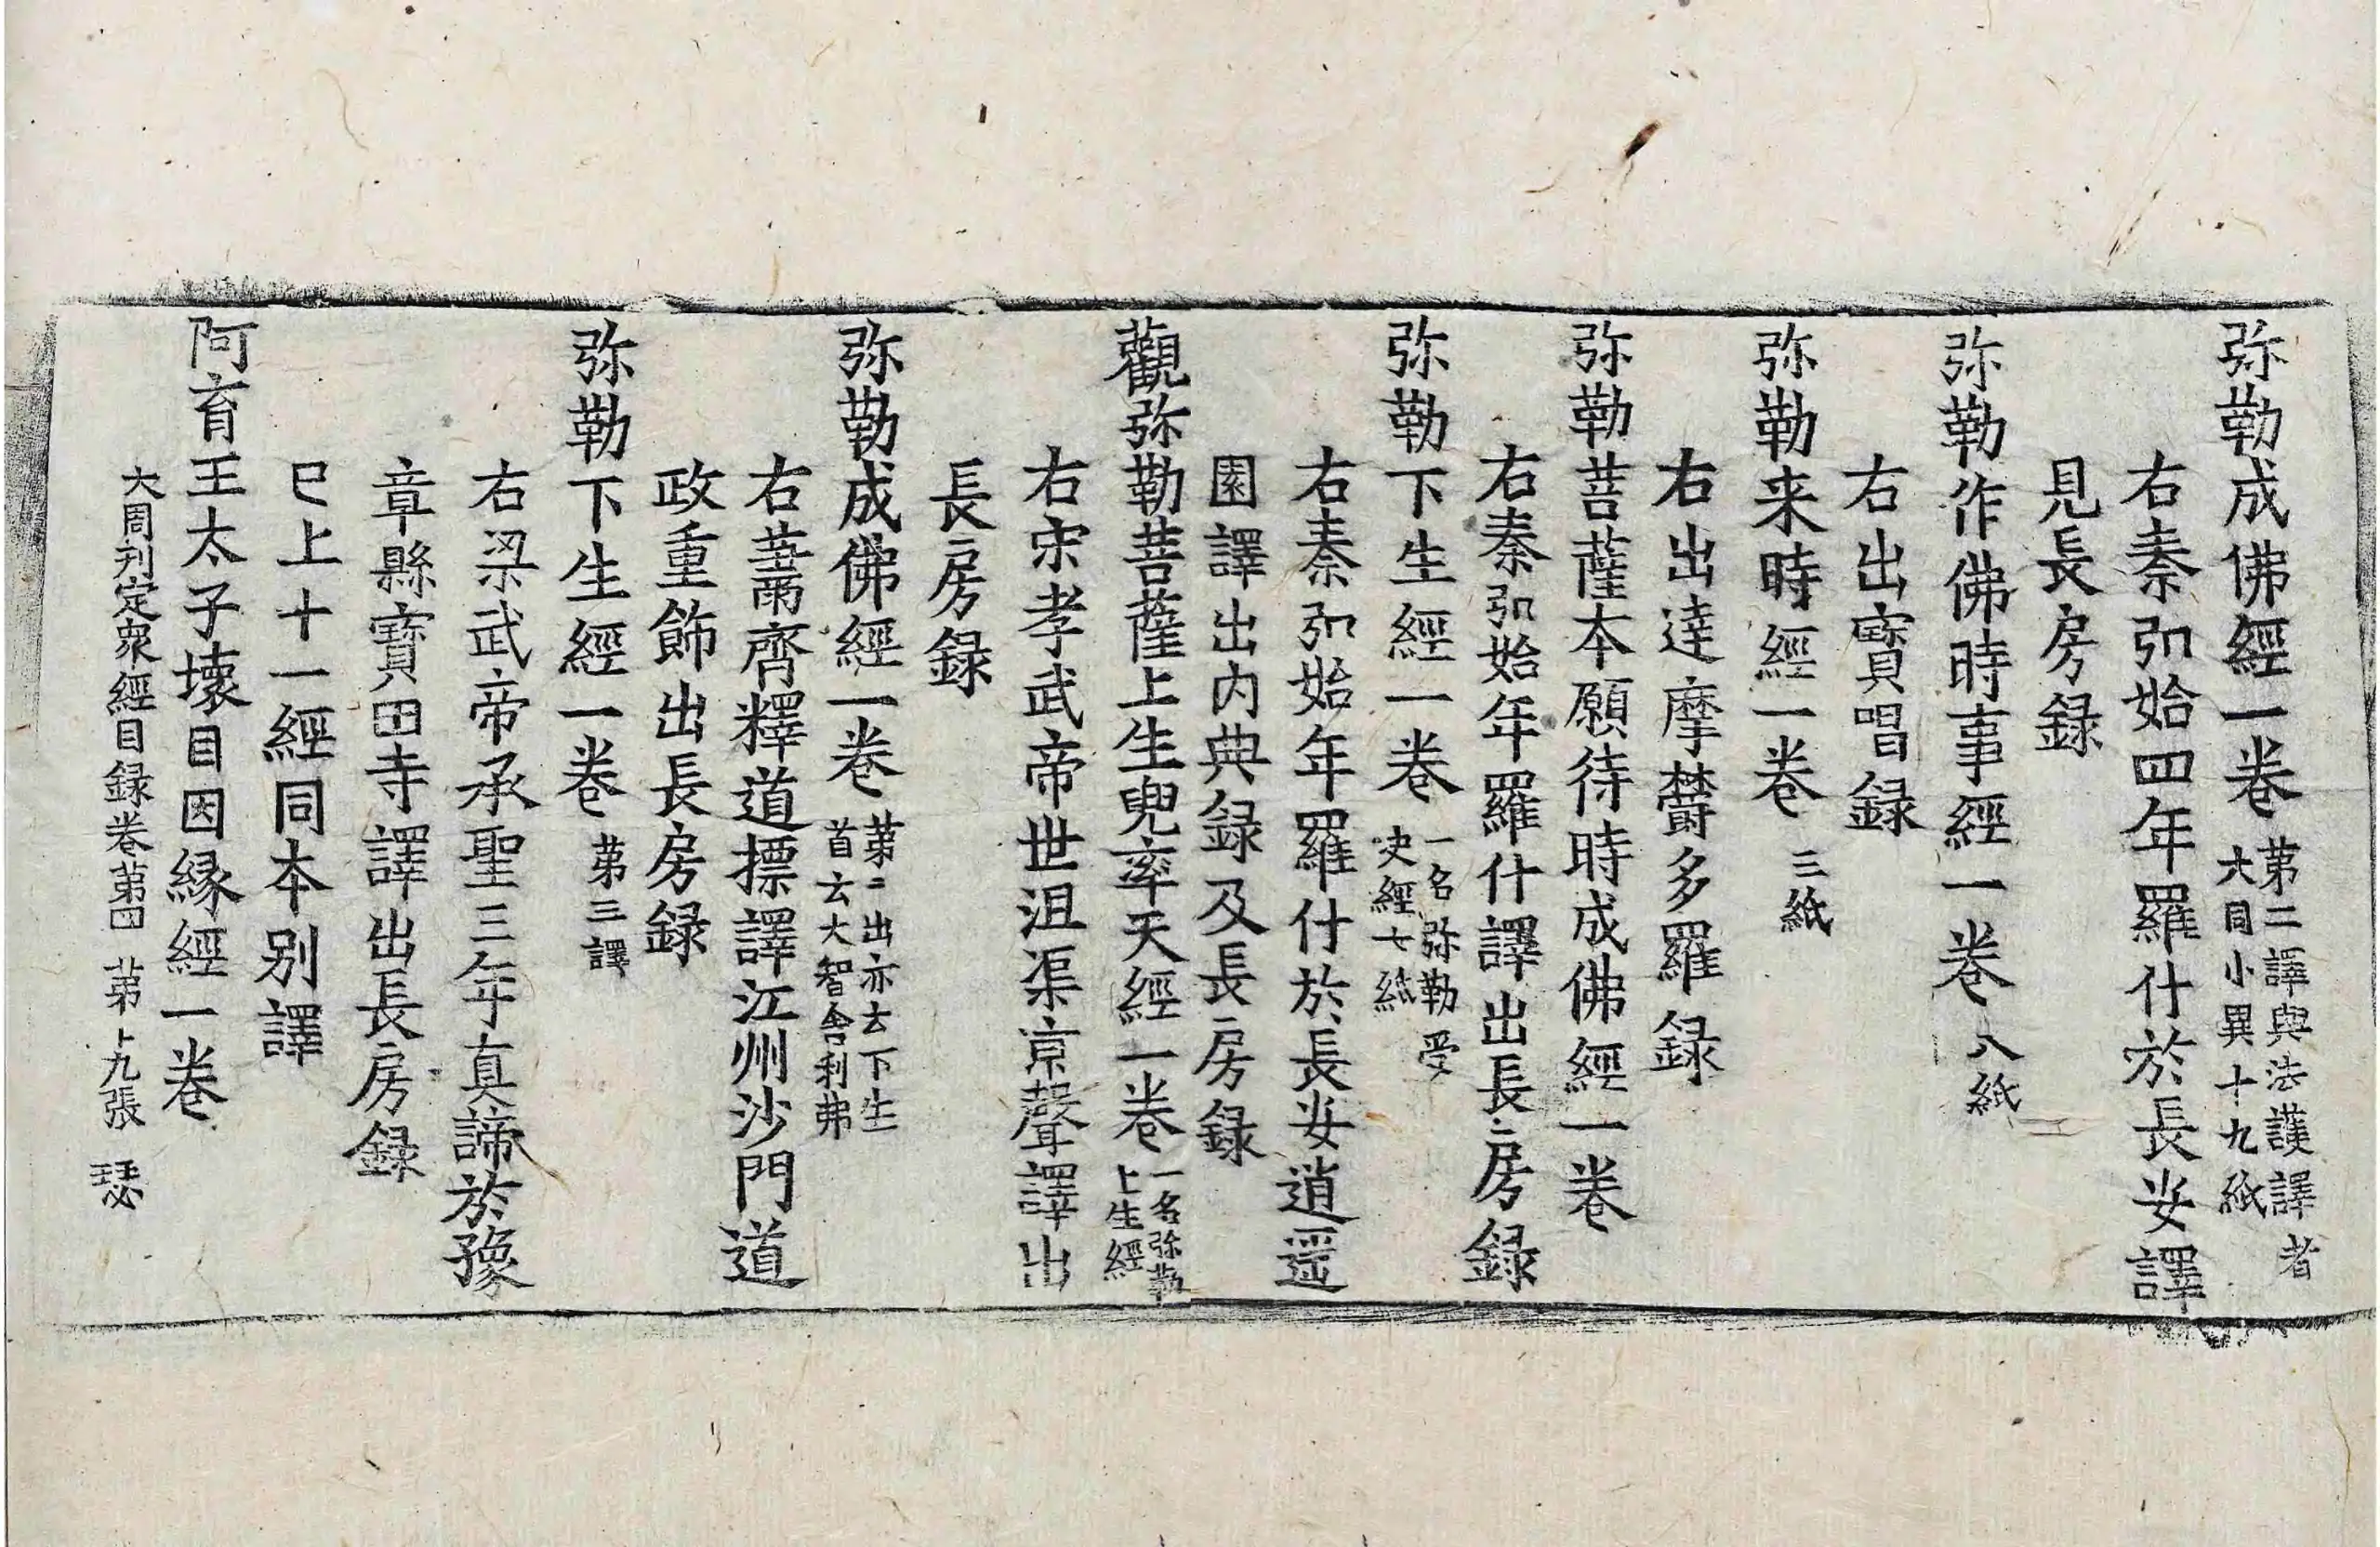 弥勒成佛經一卷 第二譯與法護譯者大同小異十九紙
右秦弘始四年羅什於長安譯
見長房録
弥勒作佛時事經一卷 八紙
右出寶唱録
弥勒来時經一卷 三紙
右出達摩欝多羅録
弥勒菩薩本願待時成佛經一卷
右秦弘始年羅什譯出長房録
弥勒下生經一卷 一名弥勒受决經七紙
右秦弘始年羅什於長安逍遥
園譯出内典録及長房録
觀弥勒菩薩上生兜率天經一卷 一名弥勒上生經
右宋孝武帝世沮渠京聲譯出
長房録
弥勒成佛經一卷 第二出亦云下生首云大智舍利弗
右蕭齊釋道摽譯江州沙門道
政重飾出長房録
弥勒下生經一卷 第三譯
右梁武帝承聖三年真諦於豫
章縣寶田寺譯出長房録
已上十一經同本别譯
阿育王太子壊目因縁經一卷
大周刋定衆經目録卷第四 第十九張 瑟